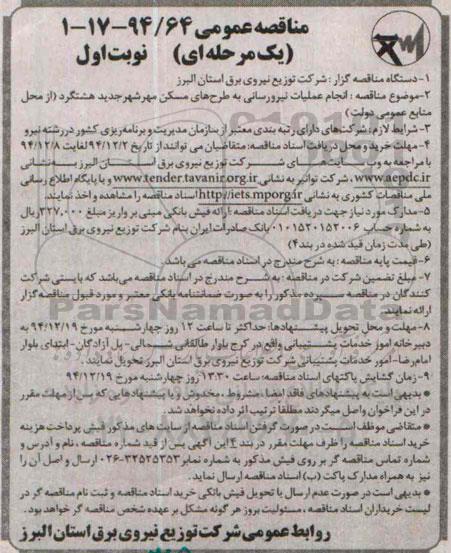 مناقصه عمومی ۹۴/۶۴-۱۷-۱
(یک مرحله ای) نوبت اول
۱-دستگاه مناقصه گزار : شرکت توزیع نیروی برق استان البرز
۲-موضوع مناقصه : انجام عملیات نیرورسانی به طرح‌های مسکن مهر شهر جدید هشتگرد (از محل
منابع عمومی دولت)
۳- شرایط لازم: شرکت‌های دارای رتبه بندی معتبر از سازمان مدیریت و برنامه‌ریزی کشور در رشته نیرو
۴- مهلت خرید و محل دریافت اسناد مناقصه: متقاضیان می توانند از تاریخ ۹۴/۱۲/۲ لغایت ۹۴/۱۲/۸
با مراجعه به وب سایت های شرکت توزیع نیروی برق استان البرز به نشانی
www.aepdc.ir ، شرکت توانیر به نشانی www.tender.tavanir.org.ir و یا پایگاه اطلاع رسانی
ملی مناقصات کشوری به نشانی http://iets.mporg.ir اسناد مناقصه را مشاهده و اخذ نمایند.
۵-مدارک مورد نیاز جهت دریافت اسناد مناقصه : ارائه فیش بانکی مبنی بر واریز مبلغ ۳۲۷،۰۰۰ ریال
به شماره حساب ۰۱۰۱۵۲۰۱۵۲۰۰۶ بانک صادرات ایران بنام شرکت توزیع نیروی برق استان البرز
(طی مدت زمان قید شده در بند ۴)
۶- قیمت پایه مناقصه : به شرح مندرج در اسناد مناقصه می باشد.
۷- مبلغ تضمین شرکت در مناقصه : به شرح مندرج در اسناد مناقصه می‌باشد که بایستی شرکت
کنندگان در مناقصه سپرده مذکور را به صورت ضمانتنامه بانکی معتبر و مورد قبول مناقصه گزار
ارائه نمایند.
۸- مهلت و محل تحویل پیشنهادها: حداکثر تا ساعت ۱۲ روز چهارشنبه مورخ ۹۴/۱۲/۱۹ به
دبیرخانه امور خدمات پشتیبانی واقع در کرج بلوار طالقانی شمالی- پل آزادگان- ابتدای بلوار
امام رضا- امور خدمات پشتیبانی شرکت توزیع نیروی برق استان البرز تحویل نمایند.
۹- زمان گشایش پاکتهای اسناد مناقصه: ساعت ۱۳:۳۰ روز چهارشنبه مورخ ۹۴/۱۲/۱۹
* بدیهی است به پیشنهادهای فاقد امضا، مشروط ، مخدوش و یا پیشنهادهایی که پس از مهلت مقرر
در این فراخوان واصل میگردند مطلقا ترتیب اثر داده نخواهد شد.
* متقاضی موظف است در صورت گرفتن اسناد مناقصه از سایت های مذکور فیش پرداخت هزینه
خرید اسناد مناقصه را ظرف مهلت مقرر در بند ۴ این آگهی پس از قید شماره مناقصه ، نام و آدرس و
شماره تماس مناقصه گر بر روی فیش مذکور به شماره نمابر ۳۲۵۲۵۳۵۳-۰۲۶ ارسال و اصل آن را
نیز به همراه مدارک پاکت (ب) اسناد مناقصه ارسال نماید.
* بدیهی است در صورت عدم ارسال یا تحویل فیش بانکی خرید اسناد مناقصه و ثبت نام مناقصه گر در
لیست خریداران اسناد مناقصه ، مسئولیت بروز هر گونه مشکل بر عهده شخص مناقصه گر خواهد بود.
روابط عمومی شرکت توزیع نیروی برق استان البرز
ParsNamadData